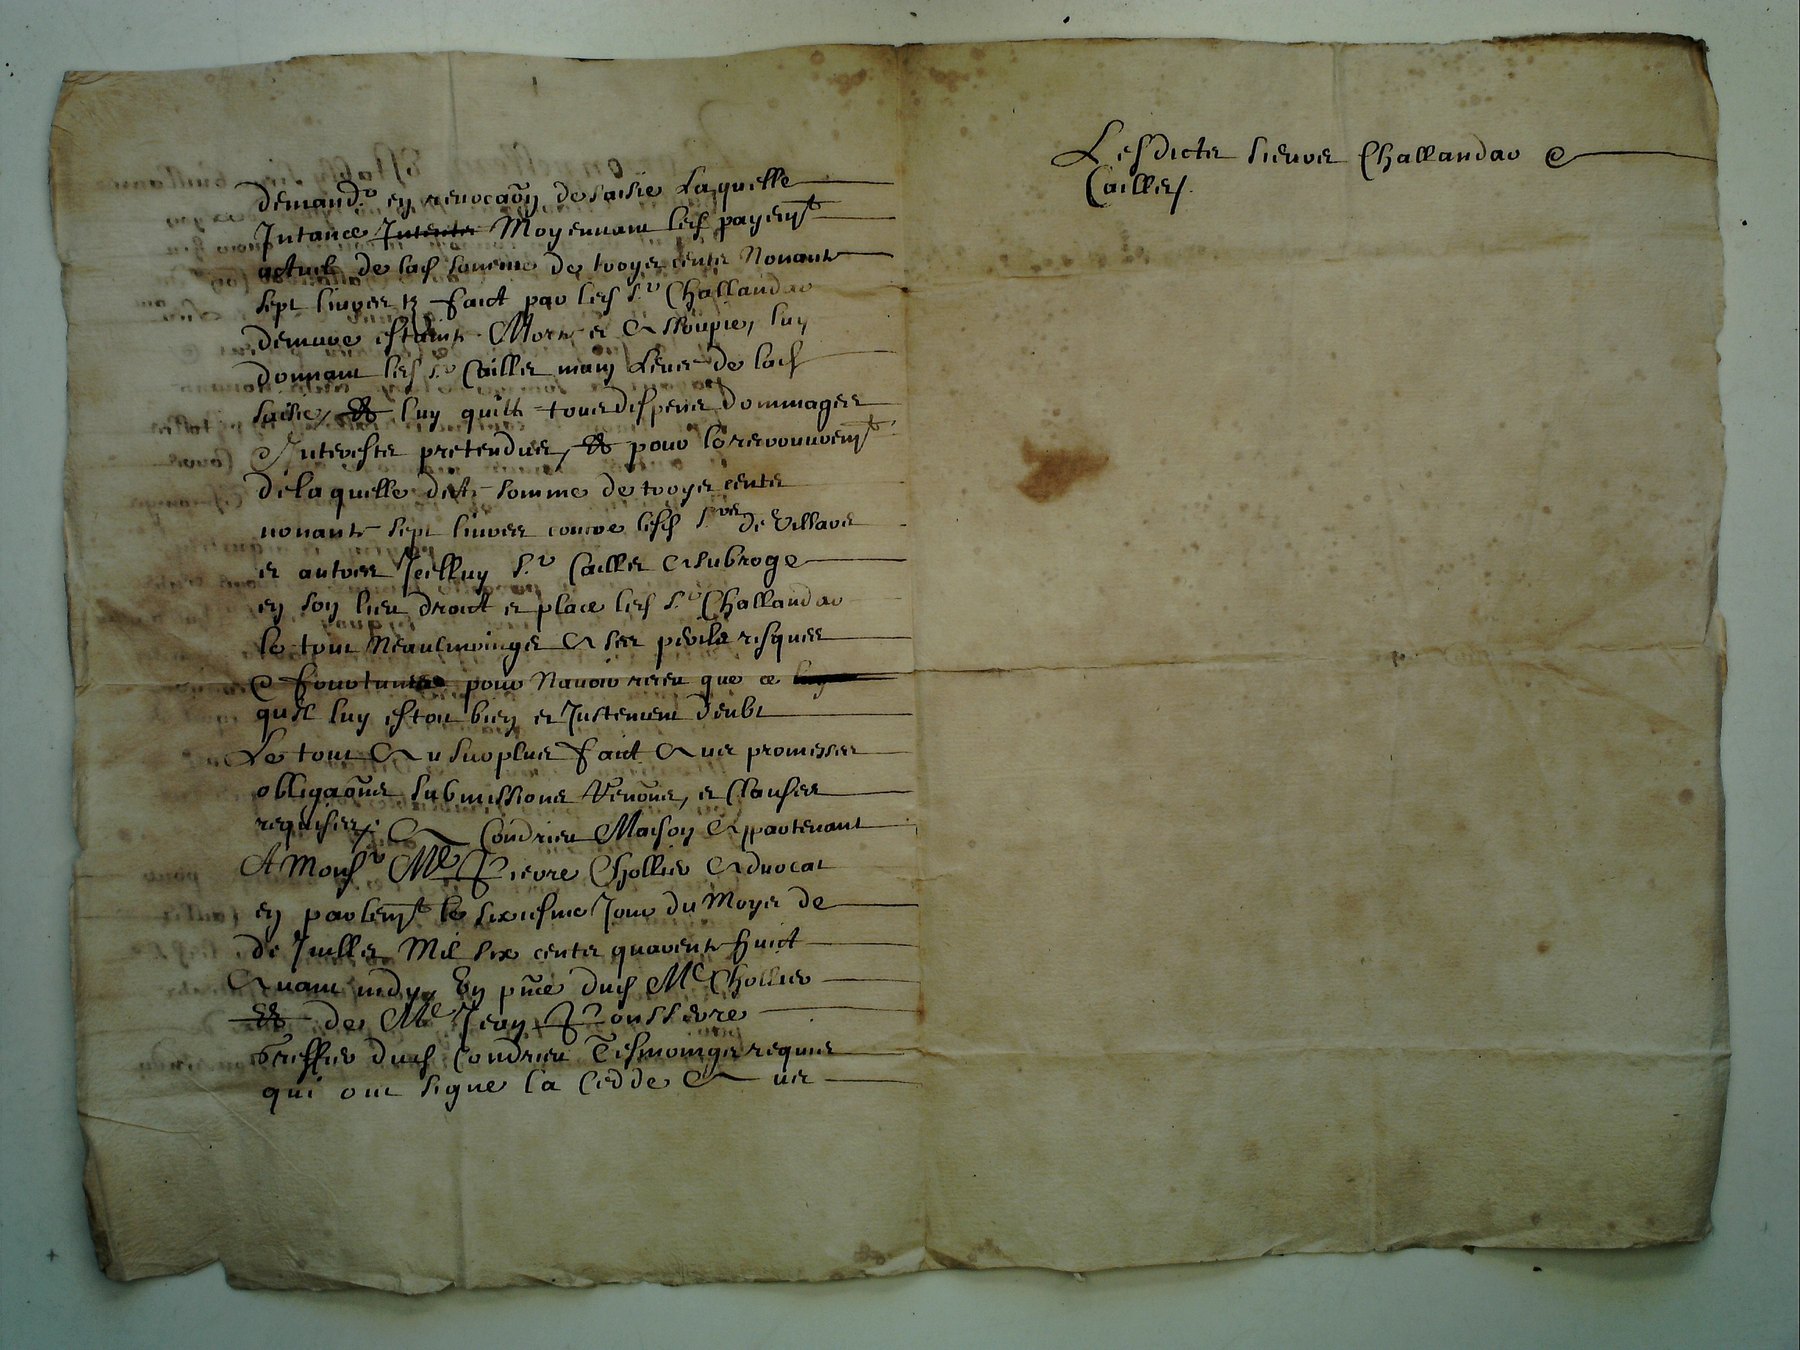 demandr en revocaōn de saisie laquelle
Intance Intente Moyennant led payemt
actuel de lad somme de troys cents Nonante
sept livres tz faict par led Sr Challandar
demure estainte Morte et Assoupie, luy
donnant led Sr Cailler main levee de lad
saisie, Et luy quitte tous despens dommages
Interestz pretendues, Et pour le recouvremt
de laquelle dicte somme de troys cents
nonante sept livres contre lesd Srs de Villars
et autres Icelluy Sr Cailler Asubroge
en son lieu droict et place led Sr Challandar
le tout Neaulmoings A ses perils risques
& fortunes pour Navoir receu que ce
quil luy estoit bien et Justement deubt
Le tout Au surplus faict Avec promesses
obligaōns submissions Renōns, et Clauses
requises, A Condrieu Maison Appartenant
A Monsr Me Pierre Chollier Advocat
en parlemt le sixiesme Jour du Moys de
de Juillet Mil six cents quarente huict
Avant midy, En pn̄ce dud Me Chollier
Et de Me Jean Roussierre
Greffier dud Condrieu Tesmoings requis
qui ont signe la Cedde Avec
Lesdicts sieurs Challandar &
Cailler.